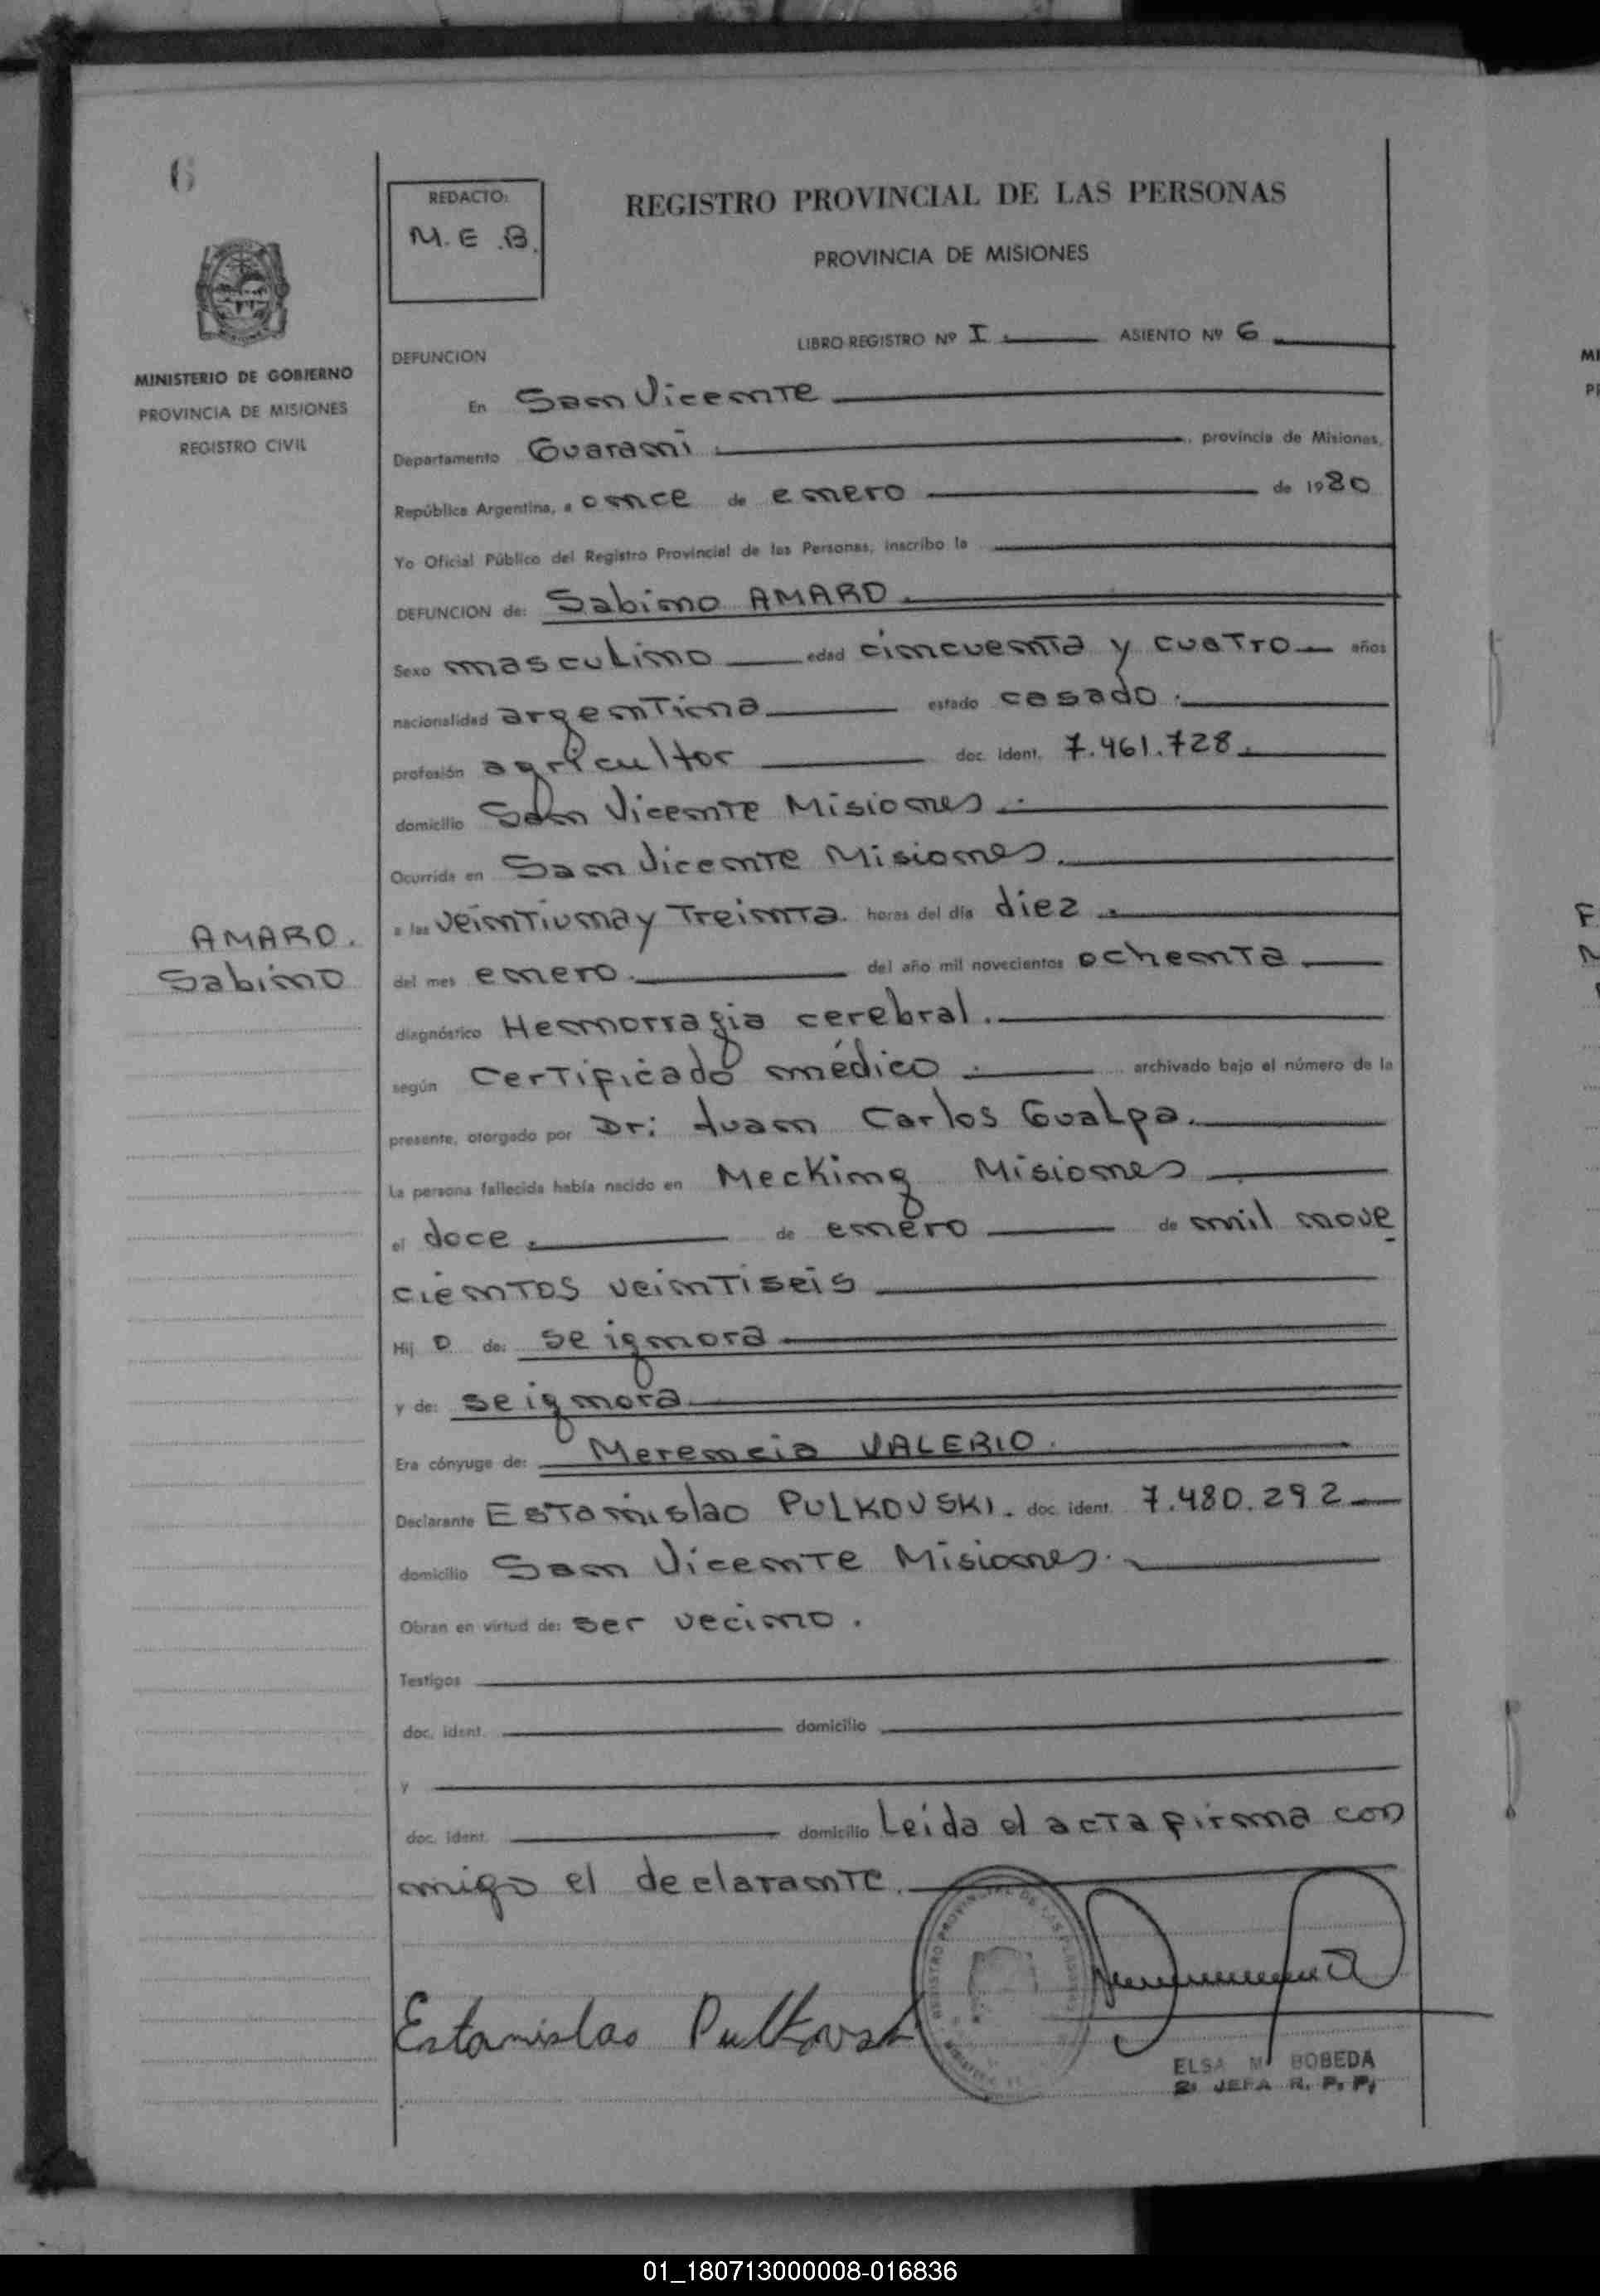 6
REDACTO:
M. E. B.
REGISTRO PROVINCIAL DE LAS PERSONAS
PROVINCIA DE MISIONES
MINISTERIO DE GOBIERNO
PROVINCIA DE MISIONES
REGISTRO CIVIL
LIBRO REGISTRO Nº I ASIENTO Nº 6
DEFUNCION
En San Vicente
Departamento Guarani , provincia de Misiones,
República Argentina, a once de enero de 1980
Yo Oficial Público del Registro Provincial de las Personas, inscribo la
DEFUNCION de: Sabino AMARO.
Sexo masculino edad cincuenta y cuatro años
nacionalidad argentina estado casado.
profesión agricultor doc. ident. 7.461.728.
domicilio San Vicente Misiones.
Ocurrida en San Vicente Misiones.
a las veintiuna y treinta. horas del día diez.
del mes enero. del año mil novecientos ochenta
diagnóstico Hemorragia cerebral.
según certificado médico. archivado bajo el número de la
presente, otorgado por Dr: Juan Carlos Gualpa.
La persona fallecida había nacido en Mecking Misiones
el doce. de enero de mil nove
cientos veintiseis
Hij o de: se ignora
y de: se ignora
Era cónyuge de: Merencia VALERIO.
Declarante Estanislao PULKOVSKI. doc. ident. 7.480.292
domicilio San Vicente Misiones.
Obran en virtud de: ser vecino.
Testigos
doc. ident. domicilio
y
doc. ident. domicilio Leida el acta firma con
migo el declarante.
AMARO.
Sabino
REGISTRO PROVINCIAL DE LAS PERSONAS
Estanislao Pulkovski
ELSA M. BOBEDA
2ª JEFA R. P. P.
01_180713000008-016836